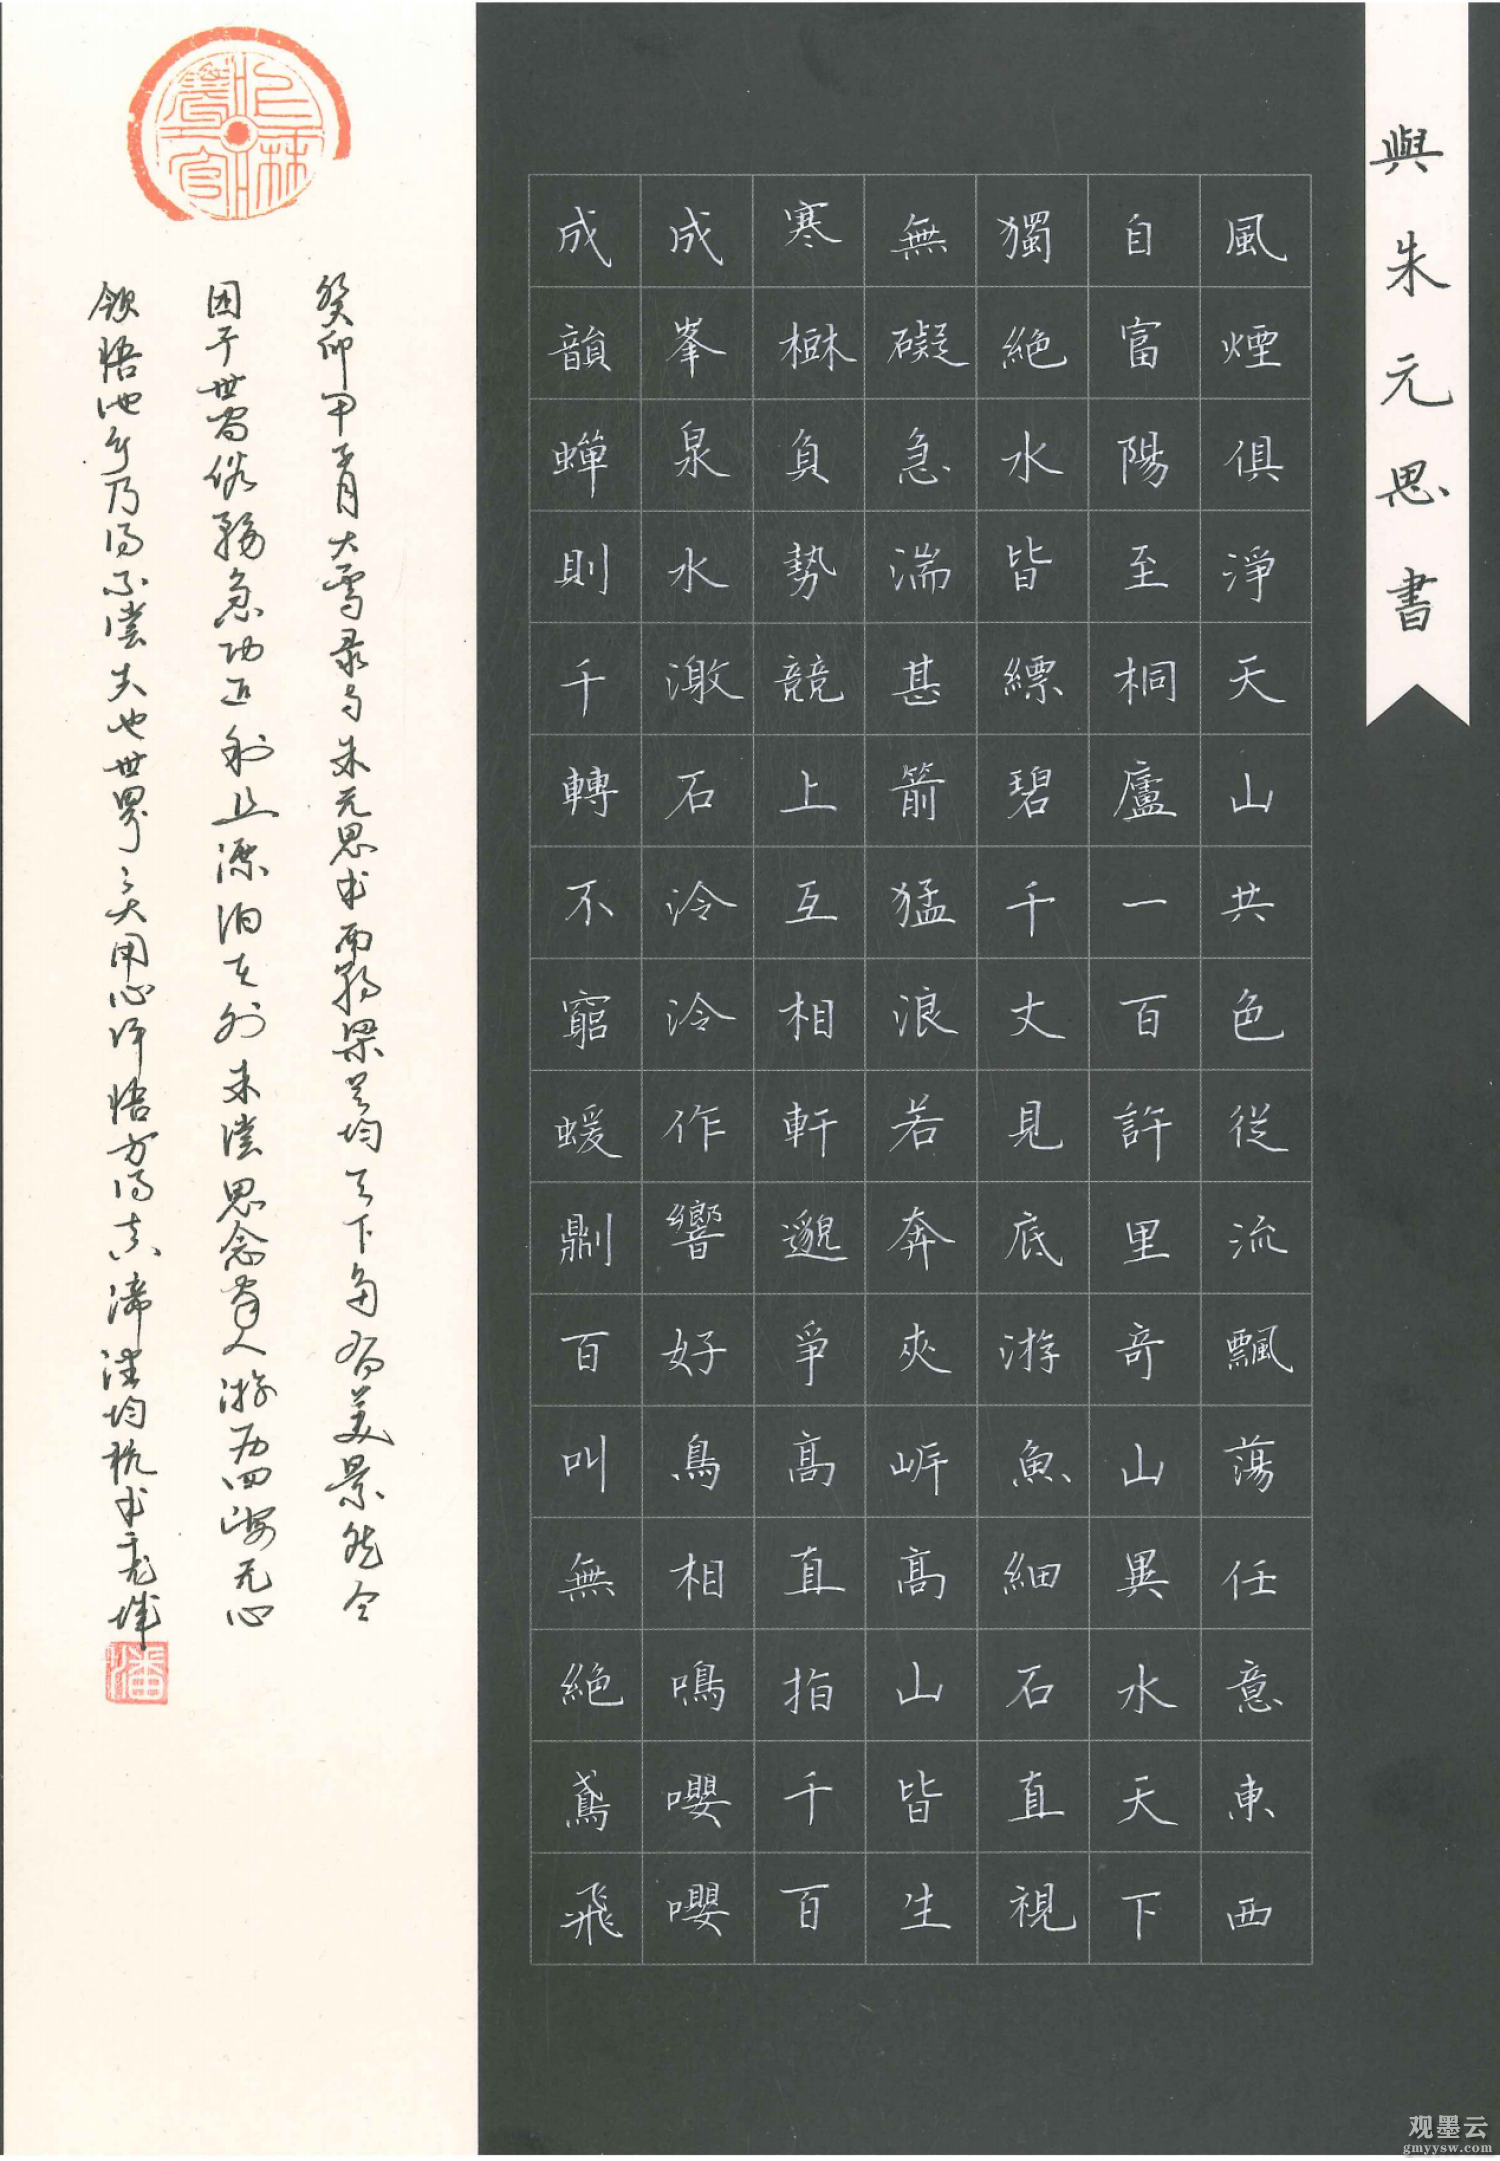 與朱元思書
風煙俱淨天山共色從流飄蕩任意東西
自富陽至桐廬一百許里奇山異水天下
獨絕水皆縹碧千丈見底游魚細石直視
無礙急湍甚箭猛浪若奔夾岸高山皆生
寒樹負勢競上互相軒邈爭高直指千百
成峯泉水激石泠泠作響好鳥相鳴嚶嚶
成韻蟬則千轉不窮蝯鼎百叫無絕鳶飛
癸卯甲子月大雪录与朱元思书南朝梁吴均天下多有美景然今
困于世窘俗务急功近利止漂泊在外未尝思念有人游历四海无心
领悟此乃得不尝失也世界之大用心评悟方得真谛
观墨云
gmyysw.com